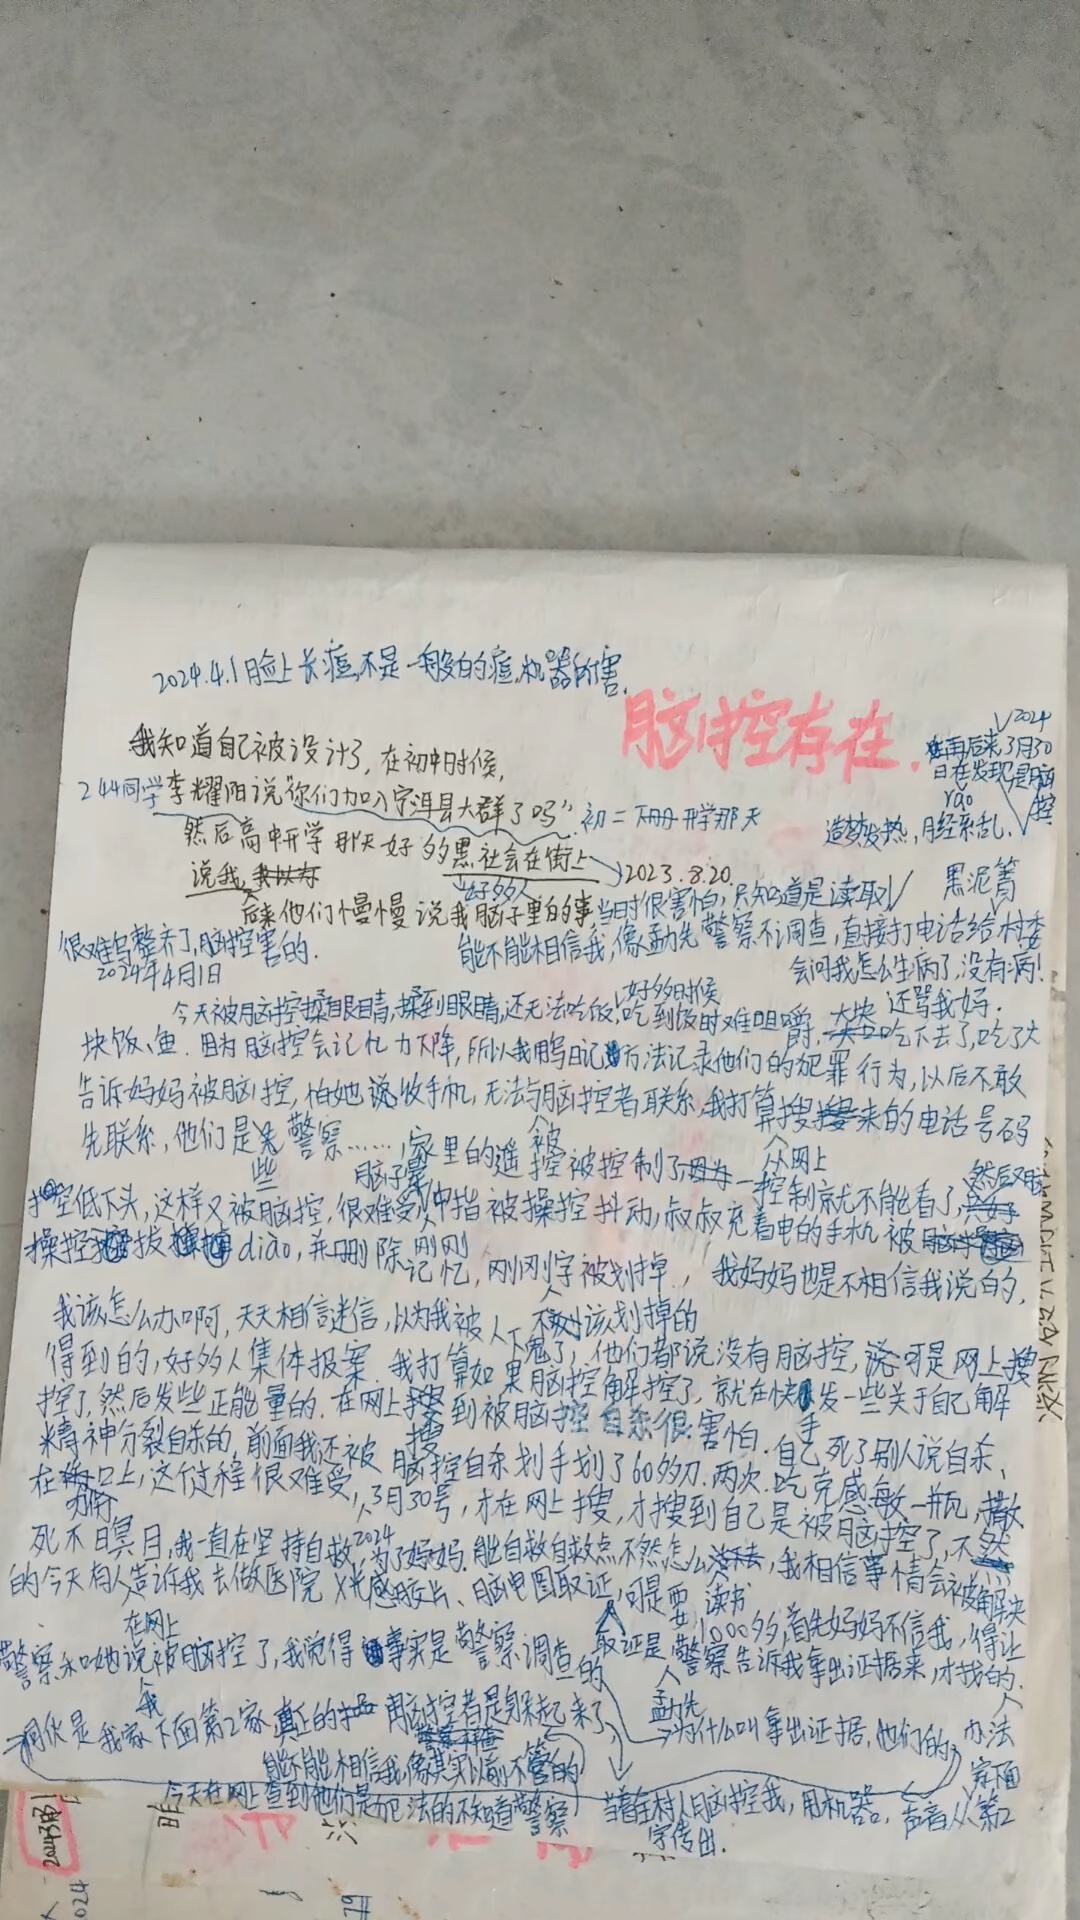 2024.4.1脸上长痘,不是一般的痘,机器所害.
脑控存在.
我知道自己被设计了,在初中时候,
244同学李耀阳说"你们加入宁洱县大群了吗".初二下册开学那天
然后高中开学那天好多黑社会在街上
好多人
2023.8.20
说我
后来他们慢慢说我脑子里的事当时很害怕,只知道是读取
2024
再后来3月30
日在发现是脑
控
造梦发热,月经紊乱.
黑泥箐
很难写整齐了,脑控害的.
2024年4月1日
能不能相信我,像孟先警察不调查,直接打电话给村委
会问我怎么生病了,没有病!
还骂我妈.
今天被脑控操眼睛,操到眼睛,还无法吃饭,吃到饭时难咀嚼,大块吃下去了,吃了大
好多时候
块饭、鱼.因为脑控会记忆力下降,所以我用写日记方法记录他们的犯罪行为,以后不敢
告诉妈妈被脑控,怕她说收手机,无法与脑控者联系,我打算搜来的电话号码
先联系,他们是些警察……,家里的遥控被控制了一控制就不能看了,然后又脑
从网上
控低下头,这样又被脑控,很难受,中指被操控抖动,叔叔充着电的手机被
操控拔diào,并删除刚刚记忆,刚刚字被划掉,我妈妈也是不相信我说的,
不该划掉的
我该怎么办啊,天天相信迷信,以为我被人下鬼了,他们都说没有脑控,可是网上搜
得到的,好多人集体报案.我打算如果脑控解控了,就在快手发一些关于自己解
控了,然后发些正能量的.在网上搜到被脑控自杀很害怕.自己死了别人说自杀、
精神分裂自杀的,前面我还被脑控自杀划手划了60多刀.两次.吃克感敏一瓶,撒
在伤口上,这个过程很难受,3月30号,才在网上搜,才搜到自己是被脑控了,不然
死不瞑目,我一直在坚持自救,为了妈妈.能自救自救点不然怎么,我相信事情会被解决
2024
的今天有人告诉我去做医院X光感胶片、脑电图取证,可是要1000多,首先妈妈不信我,得让
读书
在网上
警察和她说我被脑控了,我觉得事实是警察调查的取证是警察告诉我拿出证据来,才找的.
孟先
同伙是我家下面第2家真正的用脑控者是躲起来了为什么叫拿出证据,他们的办法
能不能相信我,像其实以前不管的
今天在网上查到他们是犯法的不知道警察
当着全村人脑控我,用机器.声音从第2
家下面
字传出.
2024